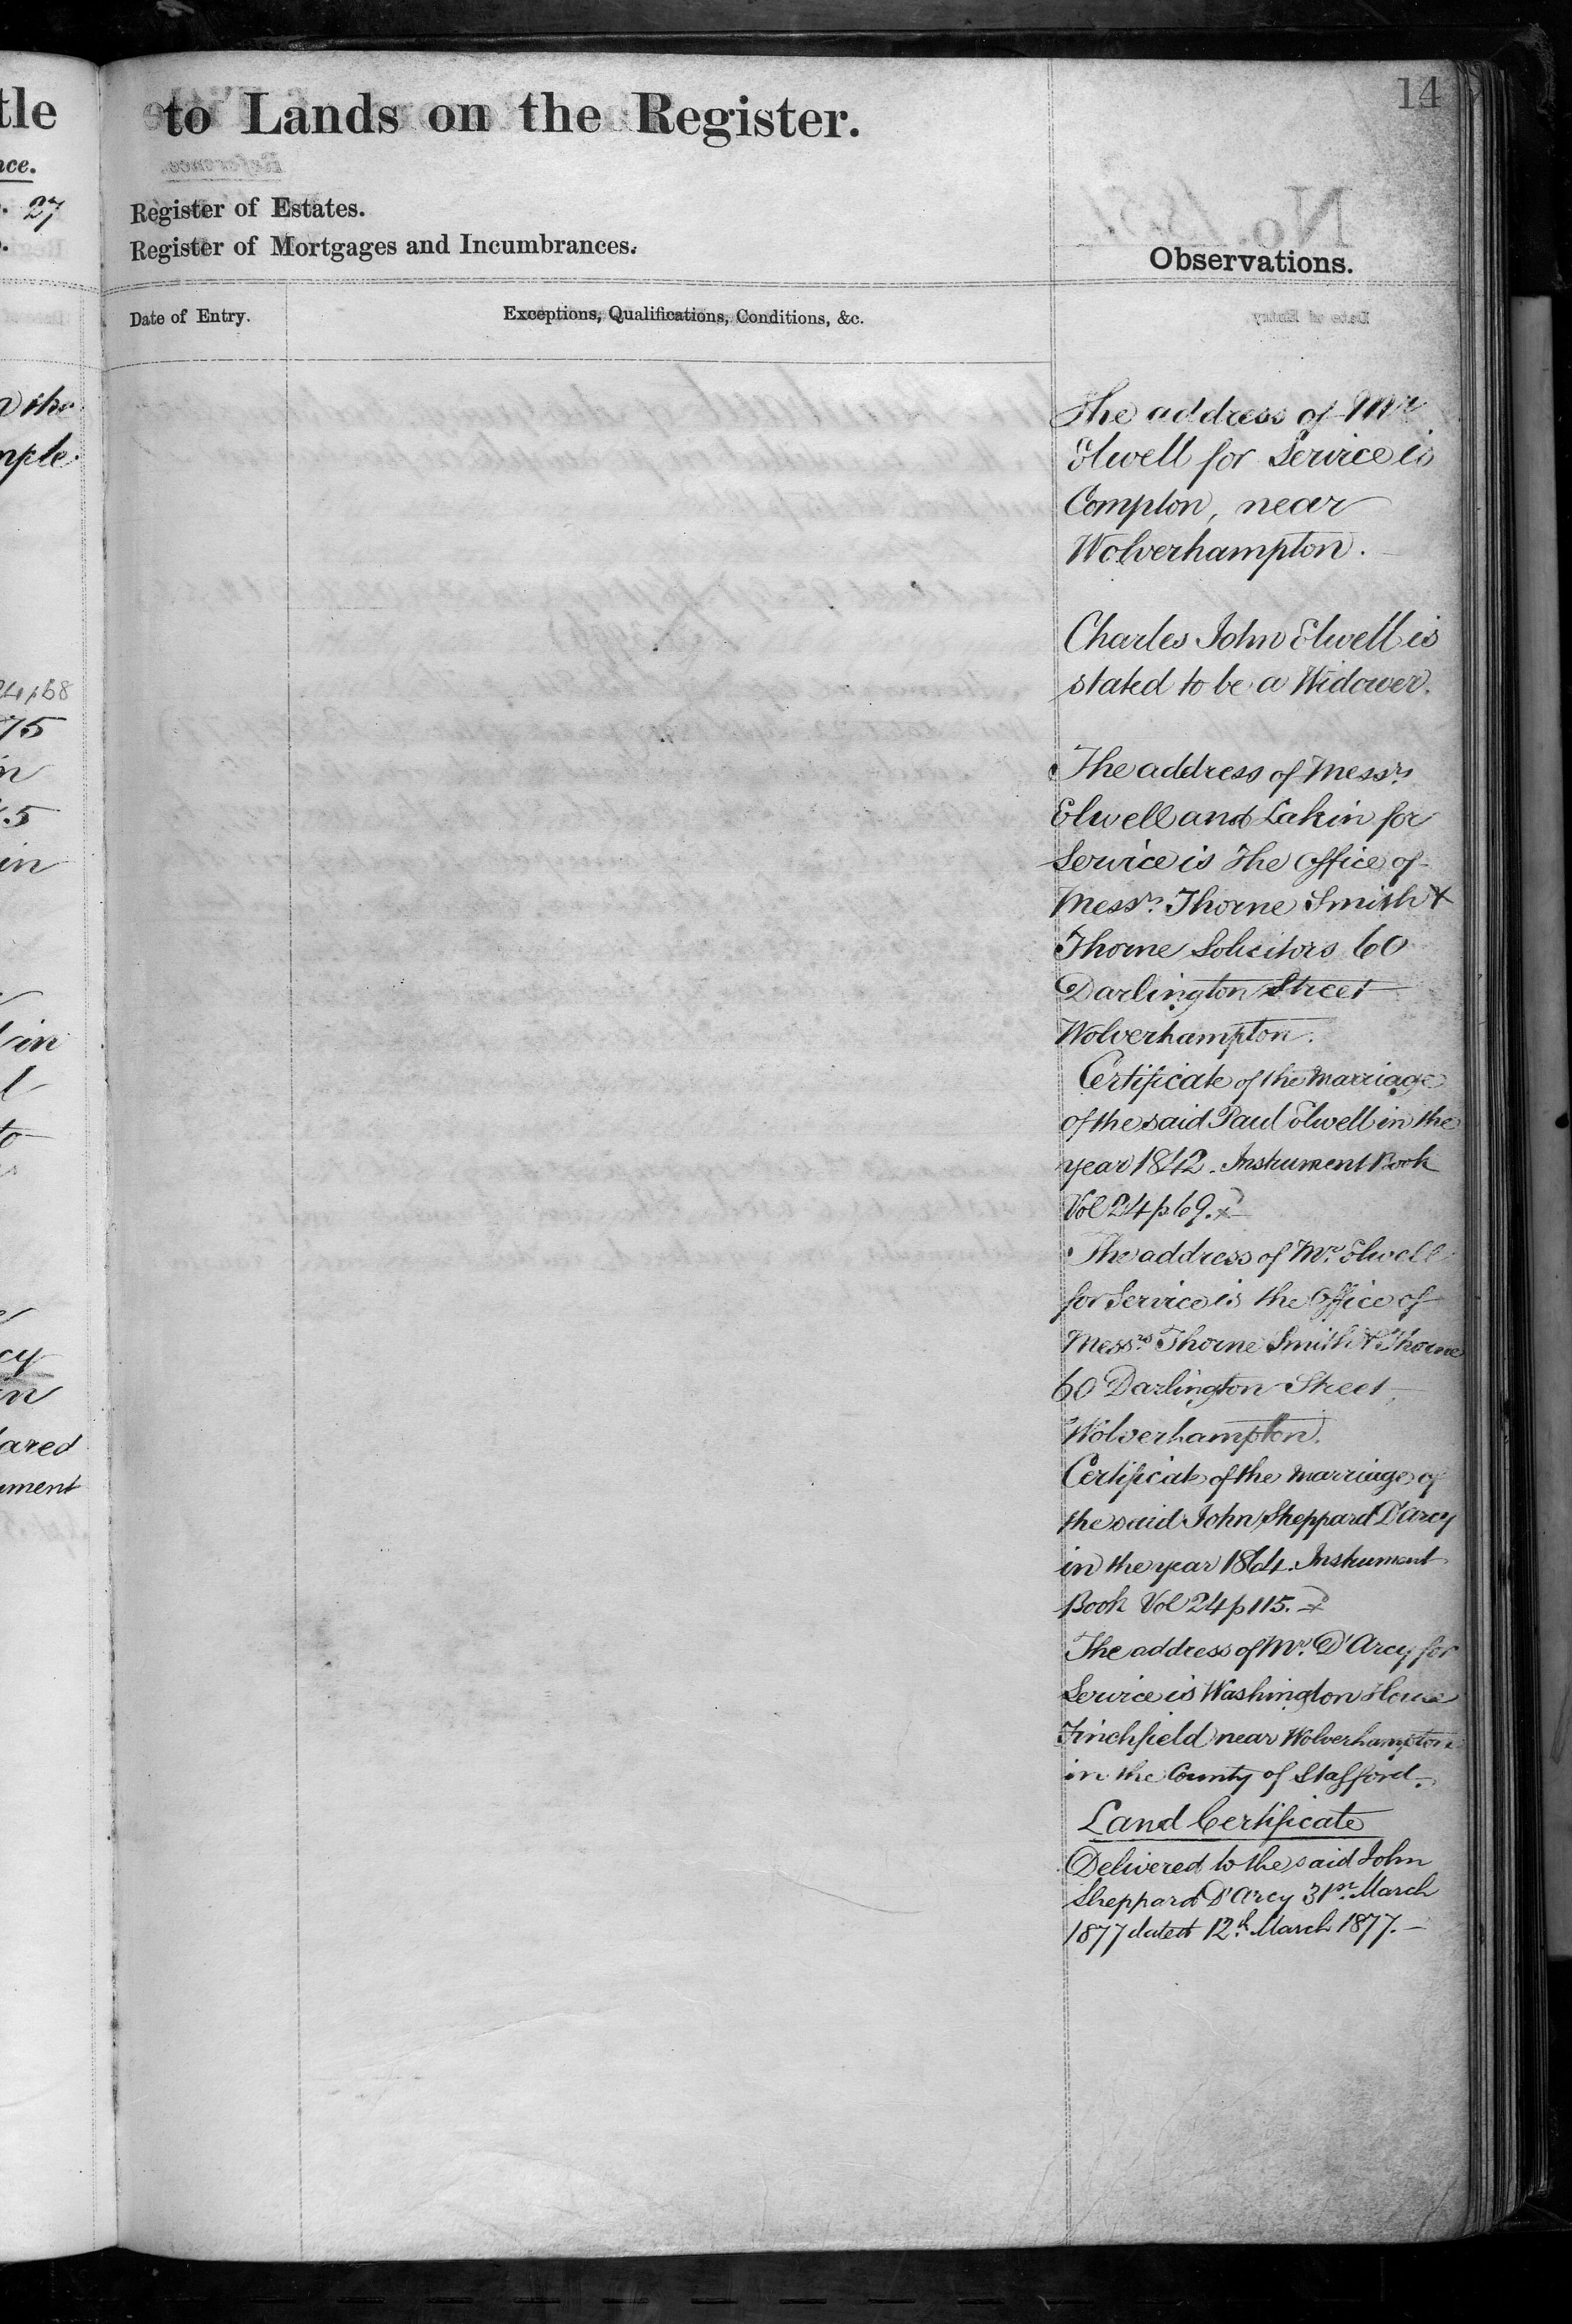 14
tle
to Lands on the Register.
nce.
. 27
Register of Estates.
Register of Mortgages and Incumbrances.
Observations.
Date of Entry.
Exceptions, Qualifications, Conditions, &c.
The address of Mr
Elwell for Service is
Compton, near
Wolverhampton.
Charles John Elwell is
stated to be a Widower.
The address of Messrs
Elwell and Lakin for
Service is The Office of
Messrs. Thorne Smith &
Thorne Solicitors 60
Darlington Street
Wolverhampton.
Certificate of the Marriage
of the said Paul Elwell in the
year 1842. Instrument Book
Vol 24 p 69.
The address of Mr. Elwell
for Service is the Office of
Messrs Thorne Smith & Thorne
60 Darlington Street,
Wolverhampton.
Certificate of the Marriage of
the said John Sheppard D'Arcy
in the year 1864. Instrument
Book Vol 24 p 115.
The address of Mr. D'Arcy for
Service is Washington House
Finchfield near Wolverhampton
in the County of Stafford.
Land Certificate
Delivered to the said John
Sheppard D'Arcy 31st. March
1877 dated 12th March 1877.